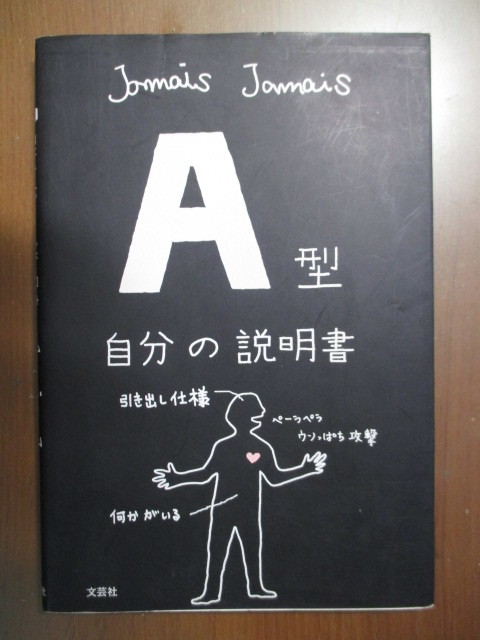 Jamais Jamais
A型
自分の説明書
引き出し仕様
ペーラペラ
ウソっぱち攻撃
何かがいる
文芸社